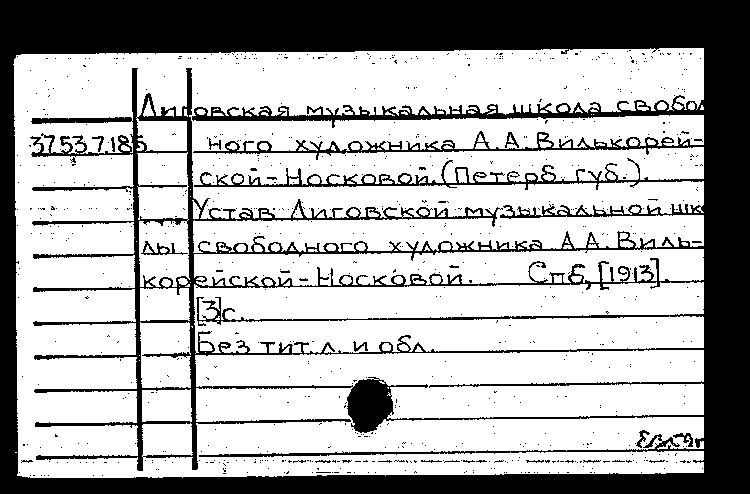 Лиговская музыкальная школа свобод
37.53.7.185 ного художника А.А. Вилькорей-
ской-Носковой. (Петерб. губ.).
Устав Лиговской музыкальной шко
лы свободного художника А.А. Виль-
корейской-Носковой. Спб, [1913].
[3]с.
Без тит. л. и обл.